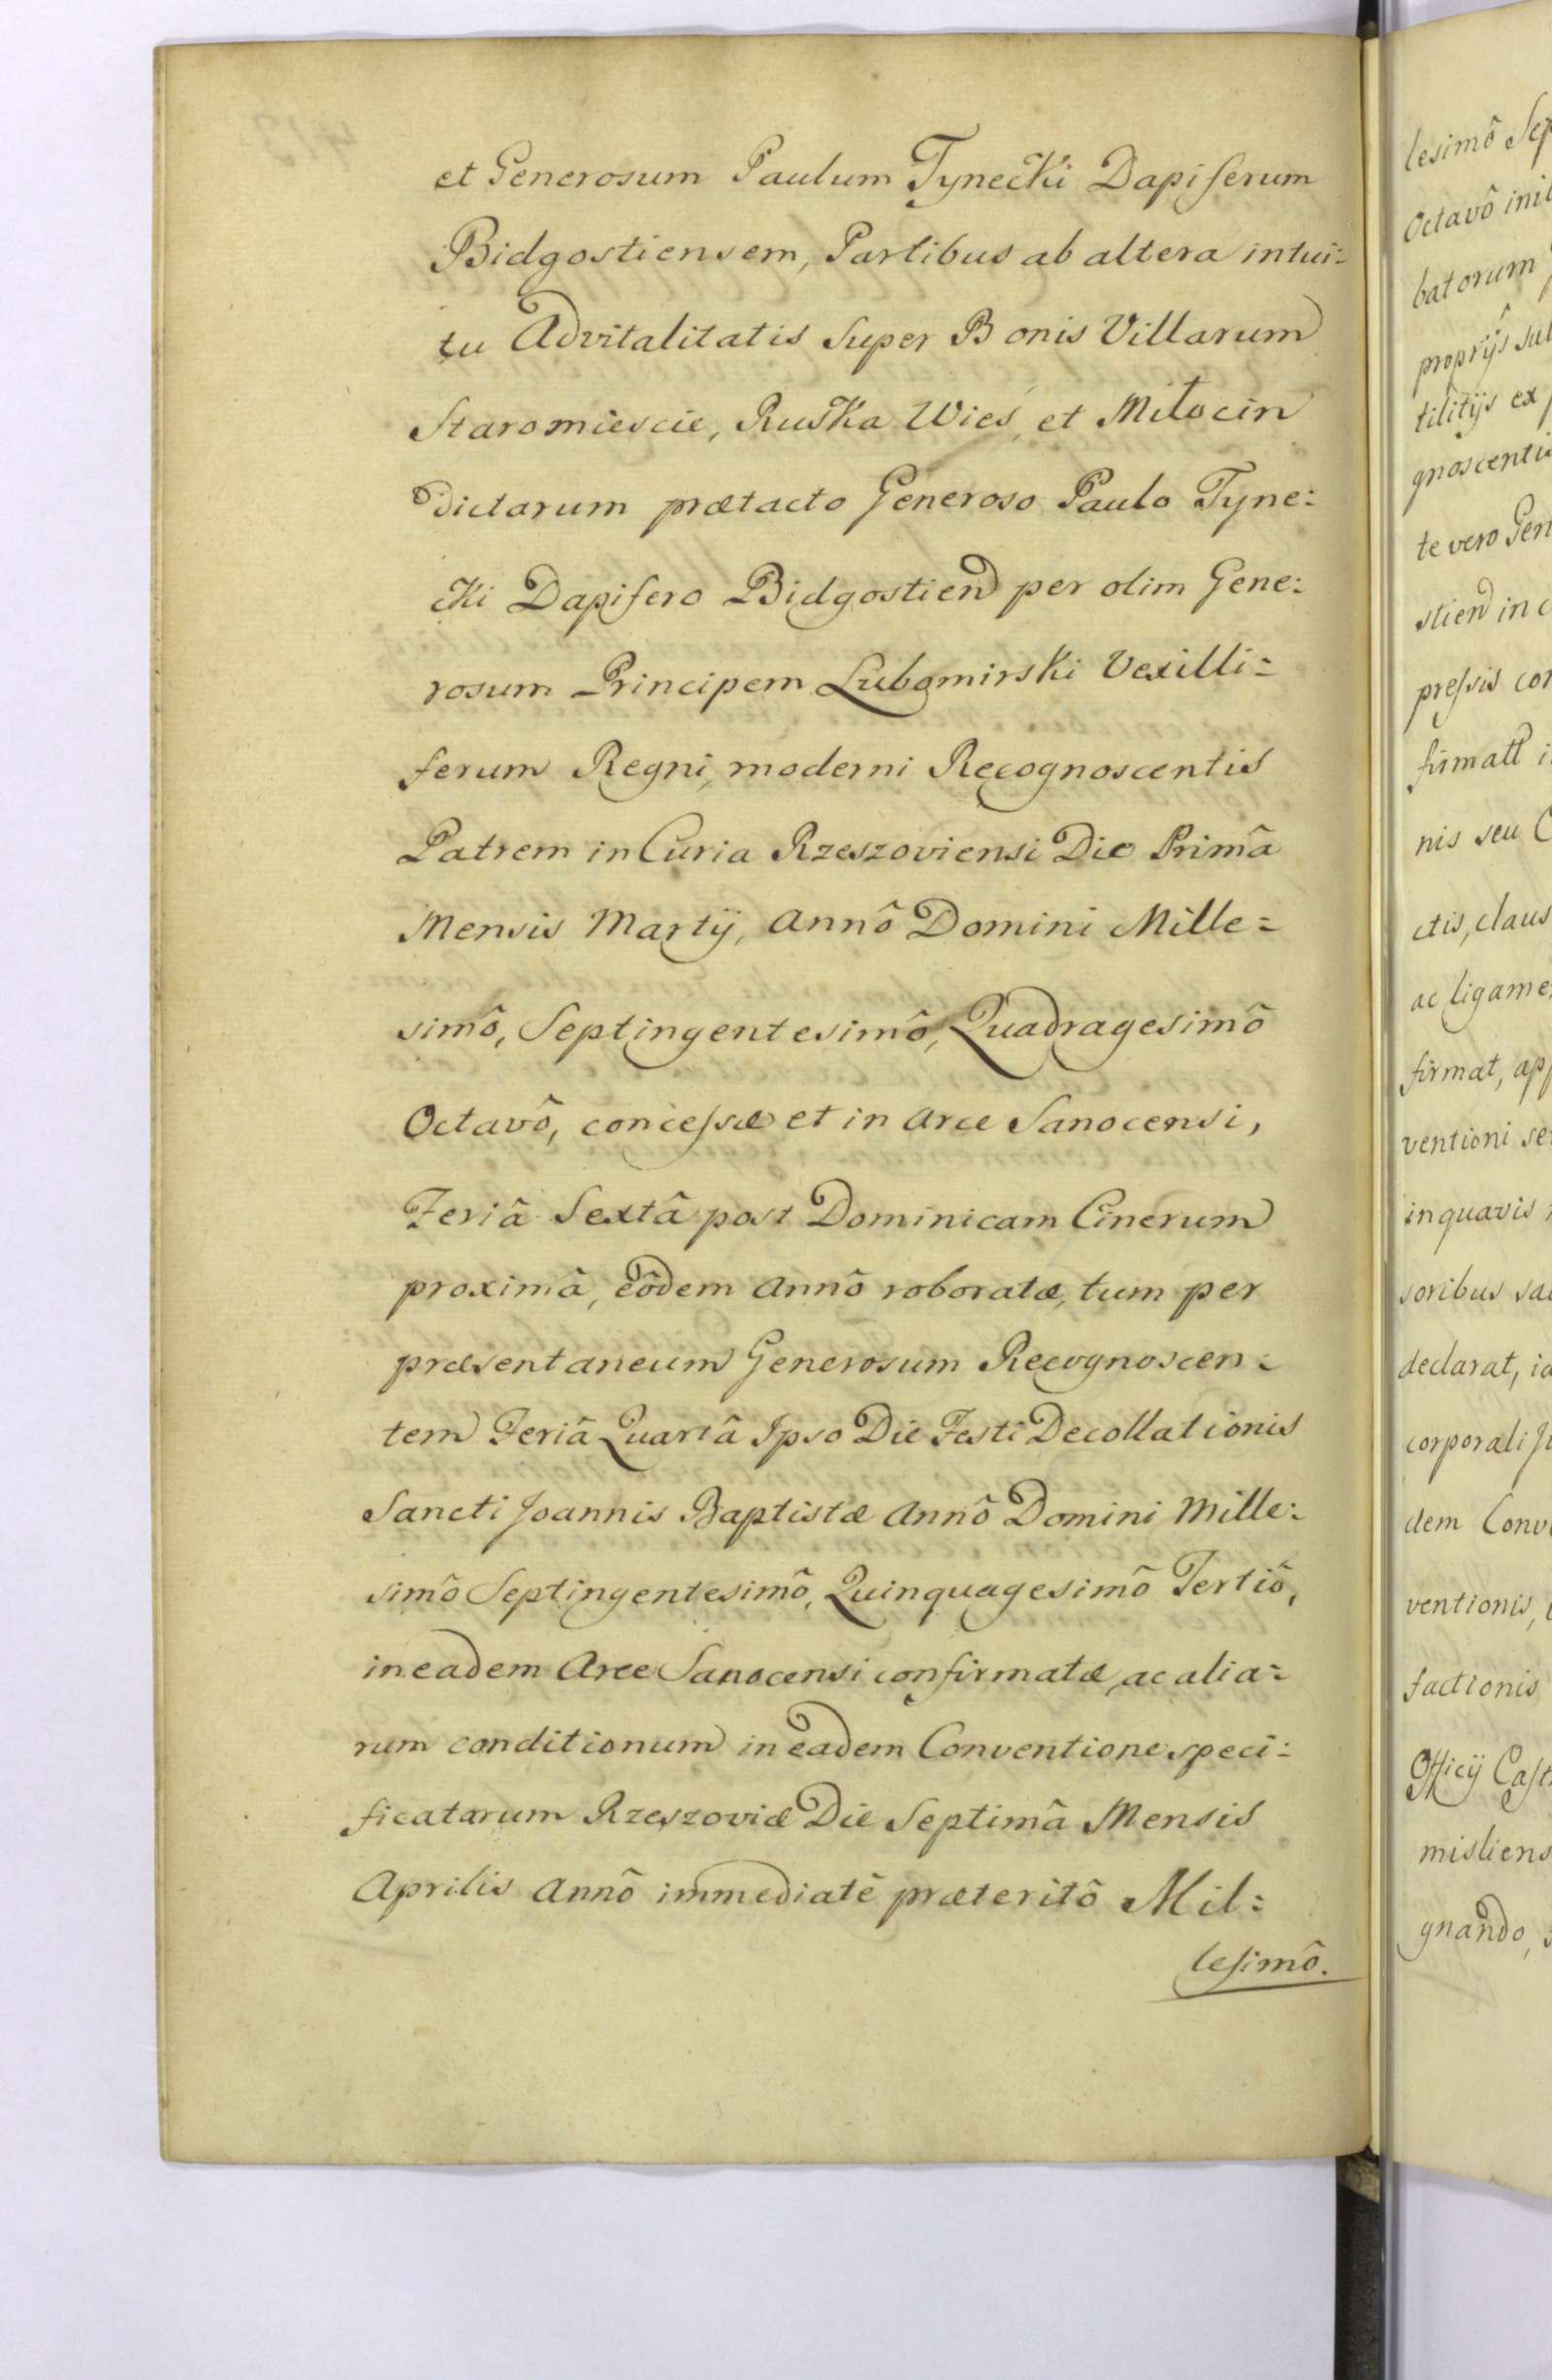 et Generosum Paulum Tynecki Dapiferum
Bidgostiensem, Partibus ab altera intui=
tu Advitalitatis Super Bonis Villarum
Staromiescie, Ruska Wieś, et Miłocin
Dictarum prætacto Generoso Paulo Tyne=
cki Dapifero Bidgostien per olim Gene=
rosum Principem Lubomirski Vexilli=
ferum Regni, moderni Recognoscentis
Patrem in Curia Rzeszoviensi Die Primâ
Mensis Martij, Annô Domini Mille=
simô, Septingentesimô, Quadragesimô
Octavô, concessæ et in Arce Sanocensi,
Feriâ Sextâ post Dominicam Cinerum
proximâ, eôdem Annô roboratæ, tum per
præsentaneum Generosum Recognoscen=
tem Feriâ Quartâ Ipso Die Festi Decollationis
Sancti Joannis Baptistæ Annô Domini Mille=
simô Septingentesimô, Quinquagesimô Tertiô,
in eadem Arce Sanocensi confirmatæ, ac alia=
rum conditionum in eadem Conventione speci=
ficatarum Rzeszoviæ Die Septimâ Mensis
Aprilis Annô immediatê præteritô Mil=
lesimô.
lesimô Sep
Octavô ini
batorum
proprijs su
tilitijs ex
gnoscenti
te vero Gen
stien in c
pressis con
firmatt i
nis seu C
ctis, claus
ac ligame
firmat, app
ventioni se
in quavis
soribus sa
declarat, i
corporali J
dem Conv
ventionis,
factionis
Officij Cast
misliens
gnando,